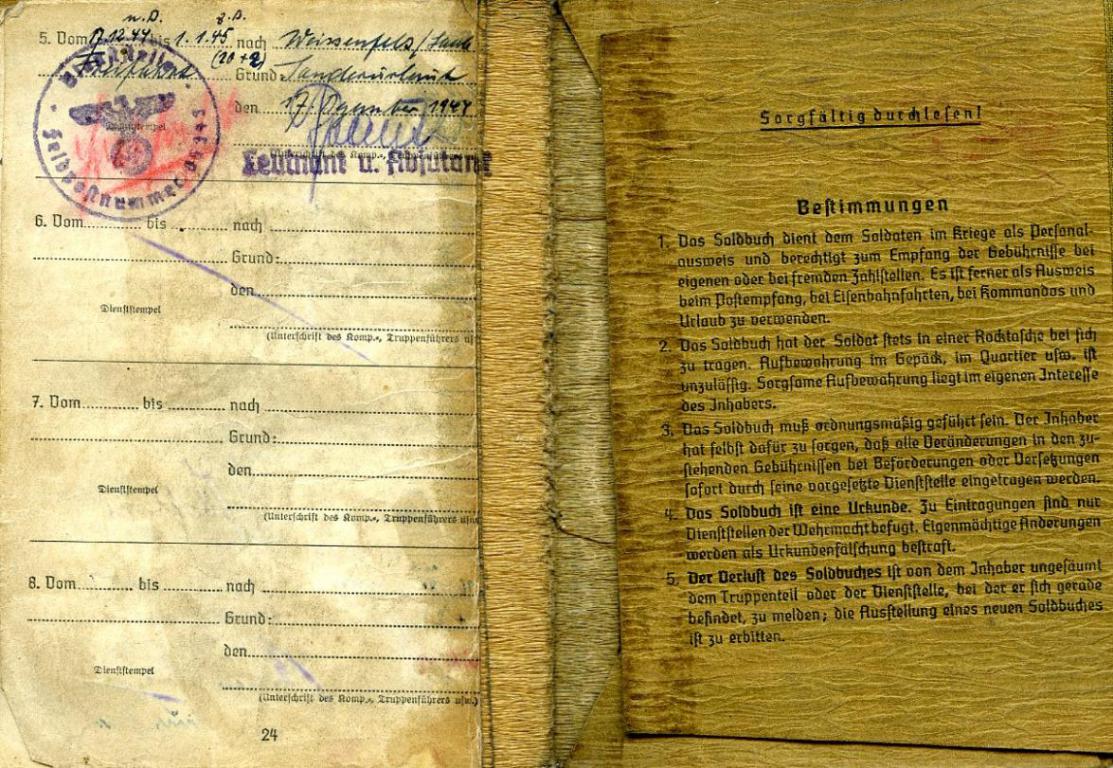 n. D. z. D.
5. Vom 17.12.44 bis 1.1.45 nach Weissenfels/Saale
(20+2)
Grund: Sonderurlaub
den 17. Dezember 1944
Dienststempel
Dienststelle
Feldpostnummer
Leutnant u. Adjutant
6. Vom bis nach
Grund:
den
Dienststempel
(Unterschrift des Komp.-, Truppenführers usw
7. Vom bis nach
Grund:
den
Dienststempel
(Unterschrift des Komp.-, Truppenführers usw
8. Vom bis nach
Grund:
den
Dienststempel
(Unterschrift des Komp.-, Truppenführers usw.)
24
Sorgfältig durchlesen!
Bestimmungen
1. Das Soldbuch dient dem Soldaten im Kriege als Personal-
ausweis und berechtigt zum Empfang der Gebührnisse bei
eigenen oder bei fremden Zahlstellen. Es ist ferner als Ausweis
beim Postempfang, bei Eisenbahnfahrten, bei Kommandos und
Urlaub zu verwenden.
2. Das Soldbuch hat der Soldat stets in einer Rocktasche bei sich
zu tragen. Aufbewahrung im Gepäck, im Quartier usw. ist
unzulässig. Sorgsame Aufbewahrung liegt im eigenen Interesse
des Inhabers.
3. Das Soldbuch muß ordnungsmäßig geführt sein. Der Inhaber
hat selbst dafür zu sorgen, daß alle Veränderungen in den zu-
stehenden Gebührnissen bei Beförderungen oder Versetzungen
sofort durch seine vorgesetzte Dienststelle eingetragen werden.
4. Das Soldbuch ist eine Urkunde. Zu Eintragungen sind nur
Dienststellen der Wehrmacht befugt. Eigenmächtige Änderungen
werden als Urkundenfälschung bestraft.
5. Der Verlust des Soldbuches ist von dem Inhaber ungesäumt
dem Truppenteil oder der Dienststelle, bei der er sich gerade
befindet, zu melden; die Ausstellung eines neuen Soldbuches
ist zu erbitten.